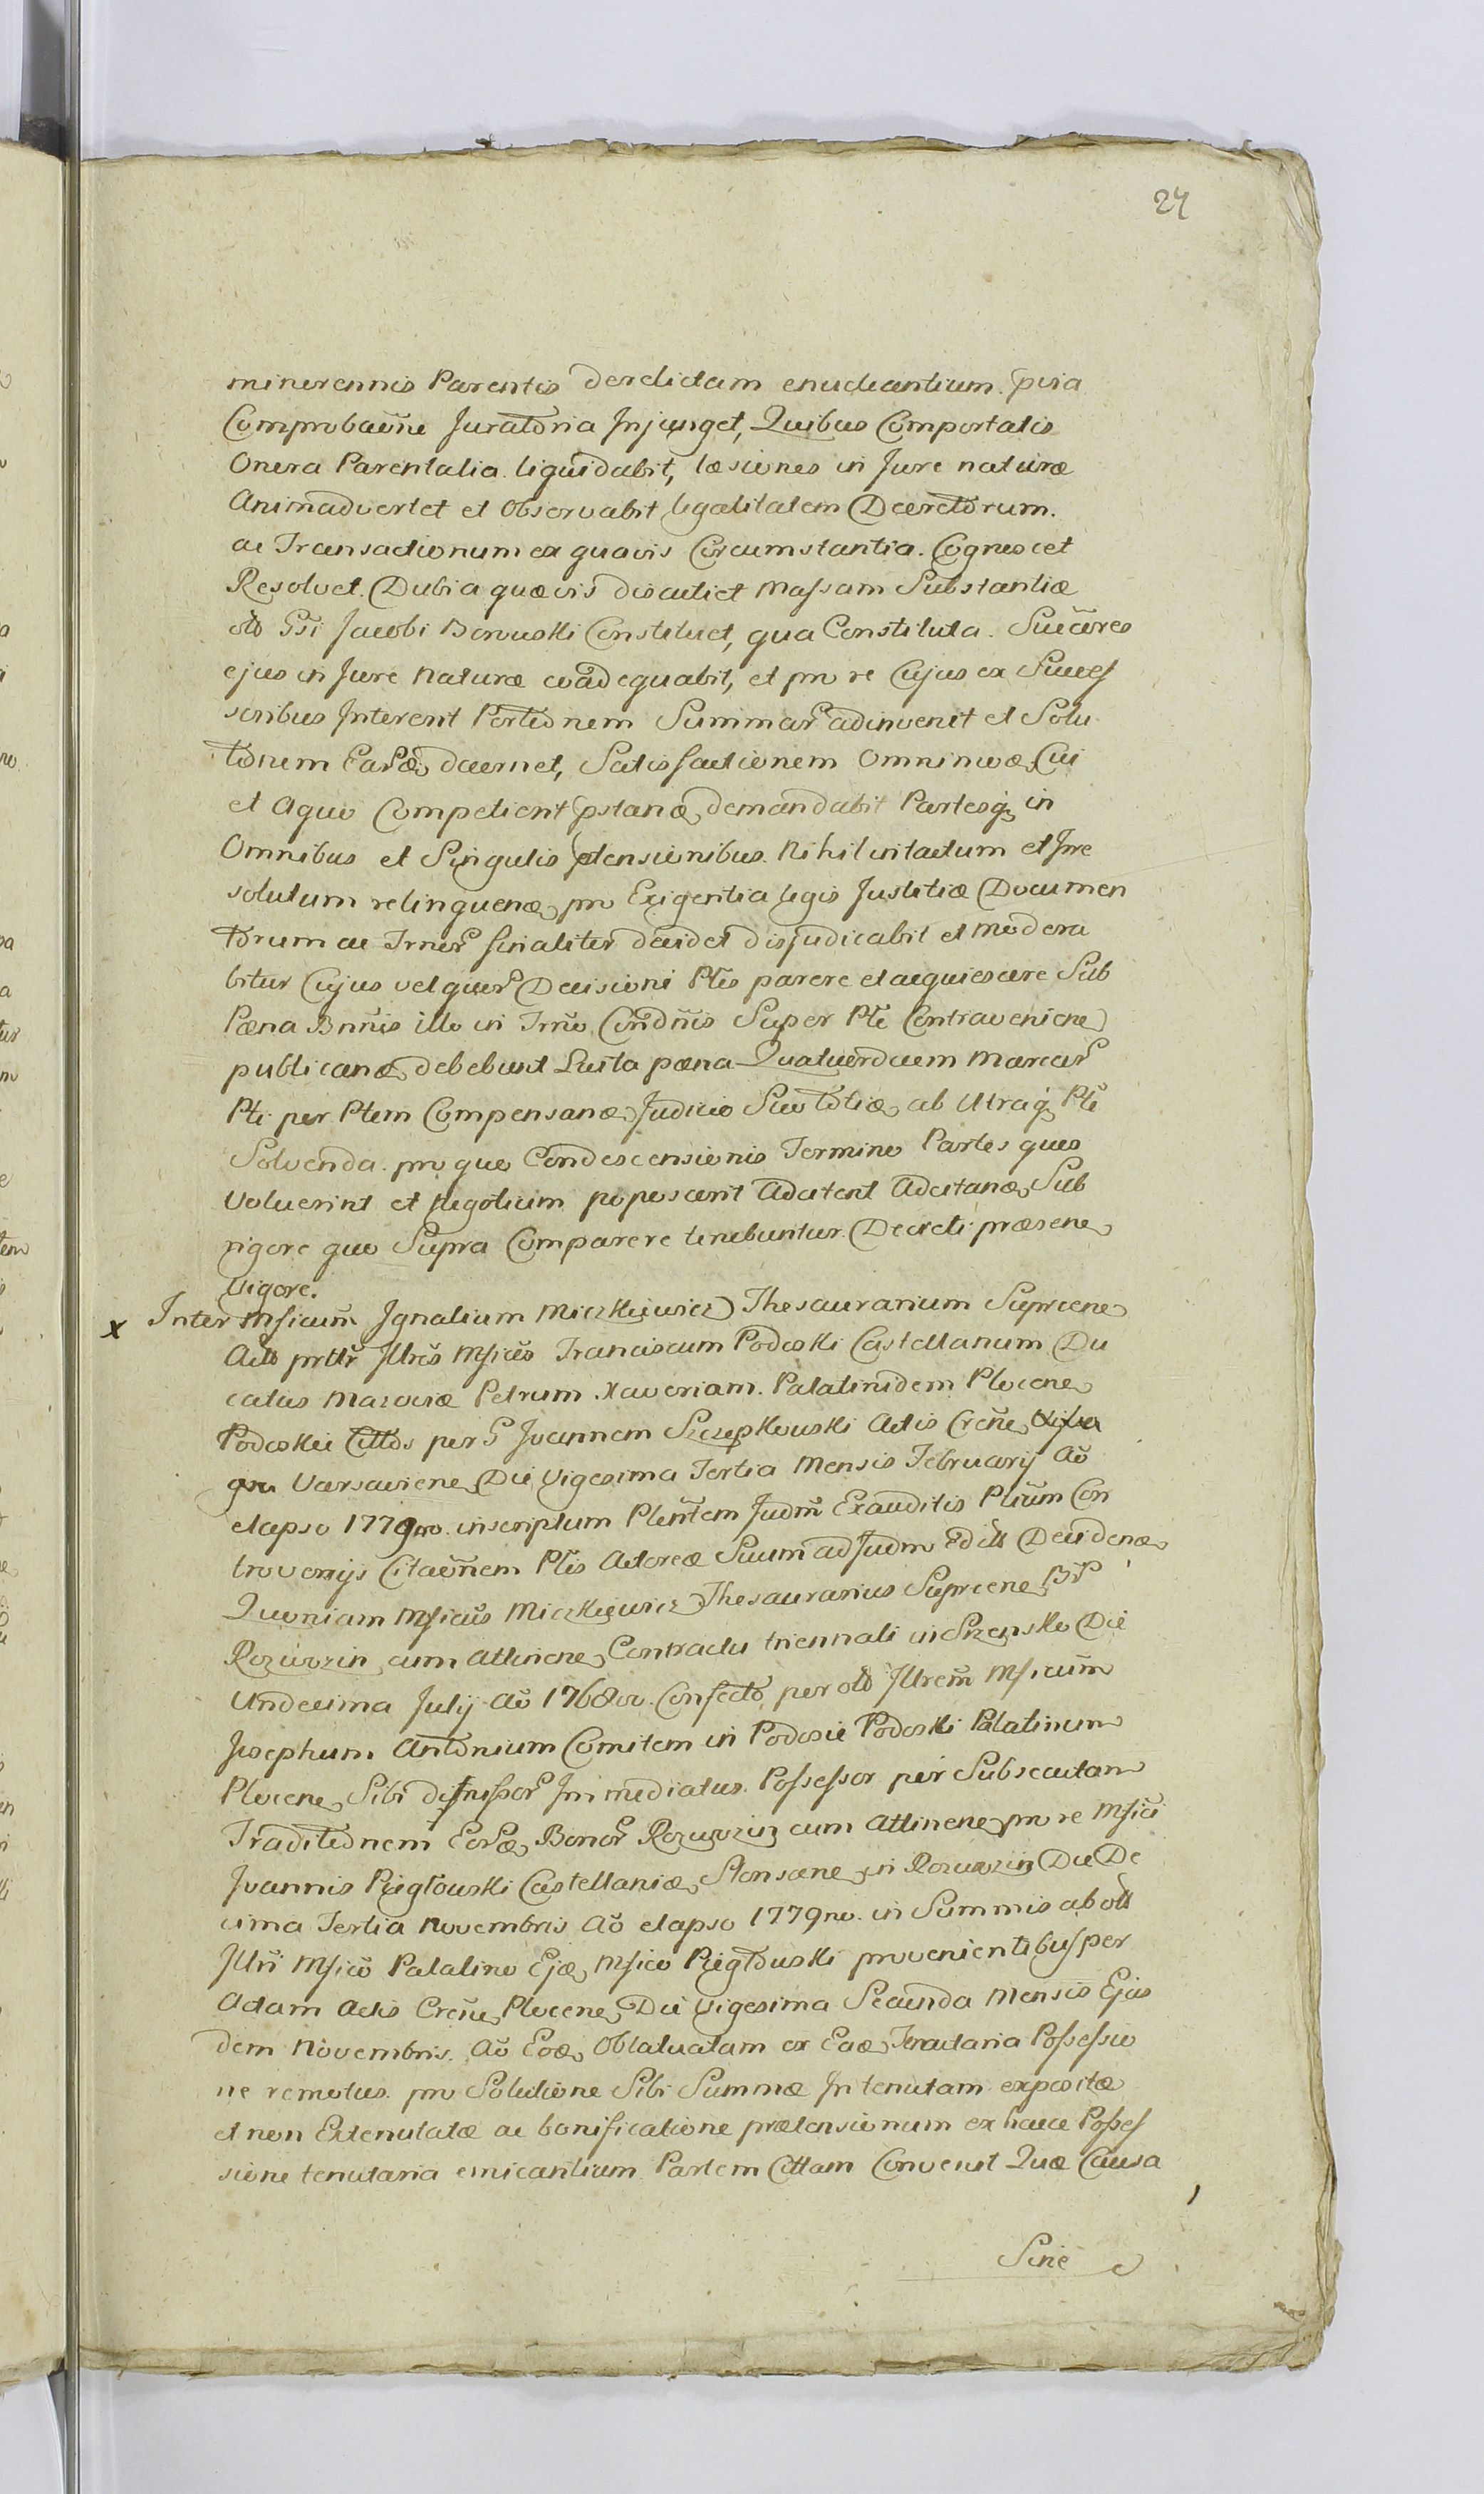 24
minorennis Parentis derelictam enucleantium. pvia
Comprobaõne Juratoria Injunget, Quibus Comportatis
Onera Parentalia liquidabit, læsiones in Jure naturæ
Animadvertet et Observabit legalitatem Decretorum.
ac Transactionum ex quavis Circumstantia. Cognoscet
Resolvet. Dubia quævis discutiet Massam Substantiæ
olo Gsi Jacobi Borouski Constituet, qua Constituta. Succõres
ejus in Jure Naturæ coadequabit, et pro re Cujus ex Succes
soribus Intererit Portionem Summar adinvenit et Solu
tionem Earõæ decernet, Satisfactionem Omnimodæ Cui
et Aquo Competierit pstanæ demandabit Partesq in
Omnibus et Singulis ptensionibus. Nihil intactum et Irre
solutum relinquenæ pro Exigentia legis Justitiæ Documen
torum ac Trner finaliter decidet disjudicabit et modera
bitur Cujus vel quor Decisioni Ptes parere et acquiescere Sub
Pœna Bnnis illo in Trno Condnis Super Pte Contravenienẽ
publicanæ debebunt Luita pœna Quatuordecem marcar
Pti per Ptem Compensanæ Judicio Suo totiæ ab Utraq Pte
Solvenda. pro quo Condescensionis Termino Partes quos
Voluerint et Negotium poposcerit Adcitent Adcitanæ Sub
rigore quo Supra Comparere tenebuntur. Decreti præsene
vigore.
x Inter Mficum Ignatium Miczkiewicz Thesaurarium Suprcene
Actt prttr Jllres Mficos Franciscum Podoski Castellanum Du
catus Mazoviæ Petrum Xaveriam. Palatinidem Plocene
Podoskie Cittos per G Joannem Szczepkouski Actis Crene
gru Varsaviene Die Vigesima Tertia Mensis February Aõ
elapso 1779no. inscriptum Plentem Judm Exauditis Ptium Con
troversys Citaõnem Ptis Actoreæ Suum ad Judm Edctt Decidenæ
Quoniam Mficus Miczkiewicz Thesaurarius Suprcene Br
Rozwozin cum Attinene Contractu triennali in Szrensko Die
Undecima July Aõ 1768vo. Confecto per olo Jllrem Mficum
Josephum Antonium Comitem in Podosie Podoski Palatinum
Plocene Sibi dismissor Immediatus Possessor per Subsecutam
Traditionem Eorõæ Bonor Rozwozin cum Attinene pro re Mfici
Joannis Rzegłouski Castellaniæ Słonsene in Rozwozin Die De
cima Tertia Novembris Aõ elapso 1779no. in Summis ab olo
Jllri Mfico Palatino Ejæ Mfico Rzegłouski provenientibus per
Actam Actis Crene Plocene Die Vigesima Secunda Mensis Ejus
dem Novembris. Aõ Eoæ Oblatuatam ex Eaæ Tenutaria Possessio
ne remotus pro Solutione Sibi Summæ In tenutam expositæ
et non Extenutatæ ac bonificatione prætensionum ex hacce Posses
sione tenutaria emicantium Partem Cittam Convenit Quæ Causa
Sine